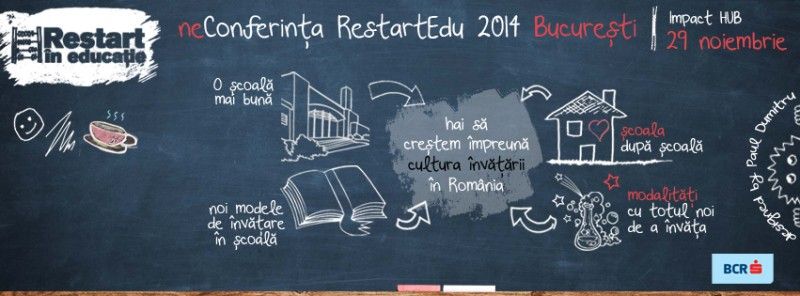 Restart
în educație
neConferința RestartEdu 2014 București
Impact HUB
29 noiembrie
O școală
mai bună
hai să
creștem împreună
cultura învățării
în România
școala
după școală
noi modele
de învățare
în școală
modalități
cu totul noi
de a învăța
designed by Paul Dumitru
BCR